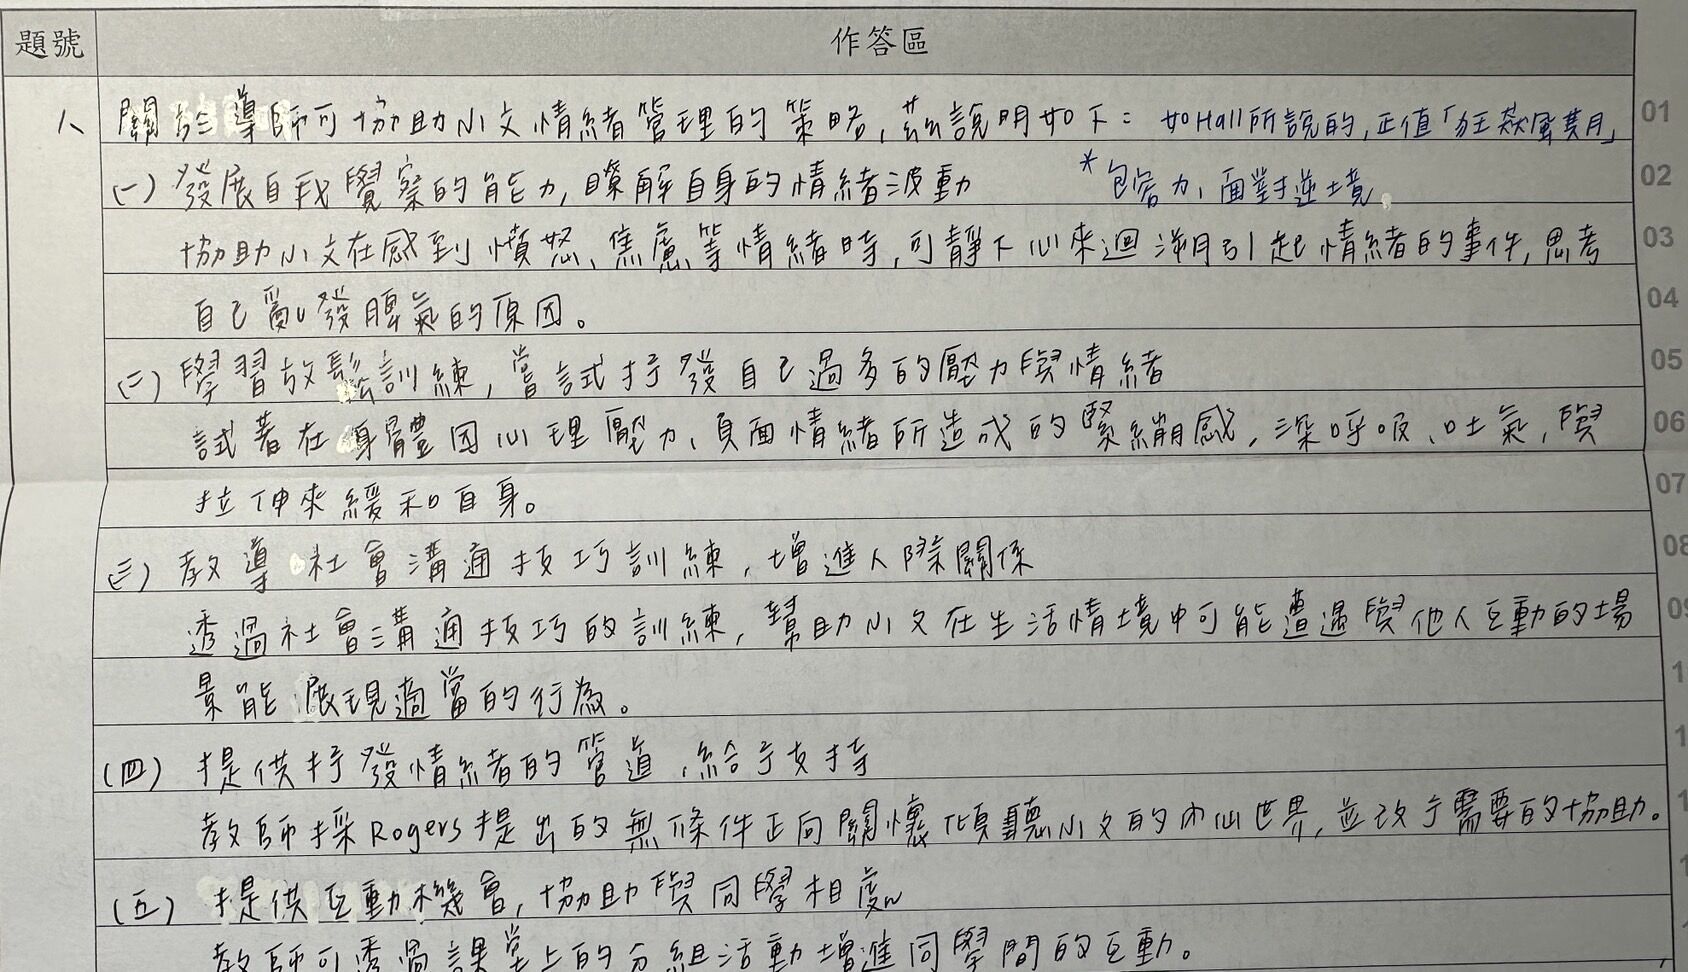 題號 作答區
八 關於導師可協助小文情緒管理的策略,茲說明如下: 如Hall所說的,正值「狂飆風暴期」 01
(一) 發展自我覺察的能力,瞭解自身的情緒波動 *包容力、面對逆境。 02
協助小文在感到憤怒、焦慮等情緒時,可靜下心來迴溯引起情緒的事件,思考 03
自己亂發脾氣的原因。 04
(二) 學習放鬆訓練,嘗試抒發自己過多的壓力與情緒 05
試著在身體因心理壓力、負面情緒所造成的緊繃感,深呼吸、吐氣,與 06
拉伸來緩和自身。 07
(三) 教導社會溝通技巧訓練,增進人際關係 08
透過社會溝通技巧的訓練,幫助小文在生活情境中可能遭遇與他人互動的場 09
景能展現適當的行為。 1
(四) 提供抒發情緒的管道,給予支持 1
教師採Rogers提出的無條件正向關懷傾聽小文的內心世界,並改予需要的協助。 1
(五) 提供互動機會,協助與同學相處
教師可透過課堂上的分組活動增進同學間的互動。